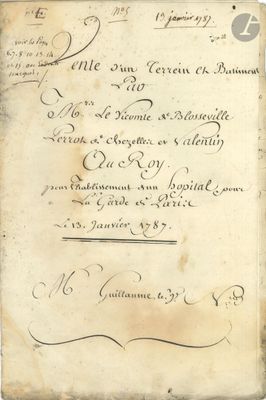 N° 5
13 janvier 1787.
voir les pages
Vente d'un Terrein et Batiment
Par
M.rs Le Vicomte de Blosseville
Perrot de Chezelles et Valentin
Au Roy.
pour l'établissement d'un hopital pour
La Garde de Paris
Le 13. Janvier 1787.
M.e Guillaume le j.e N.re